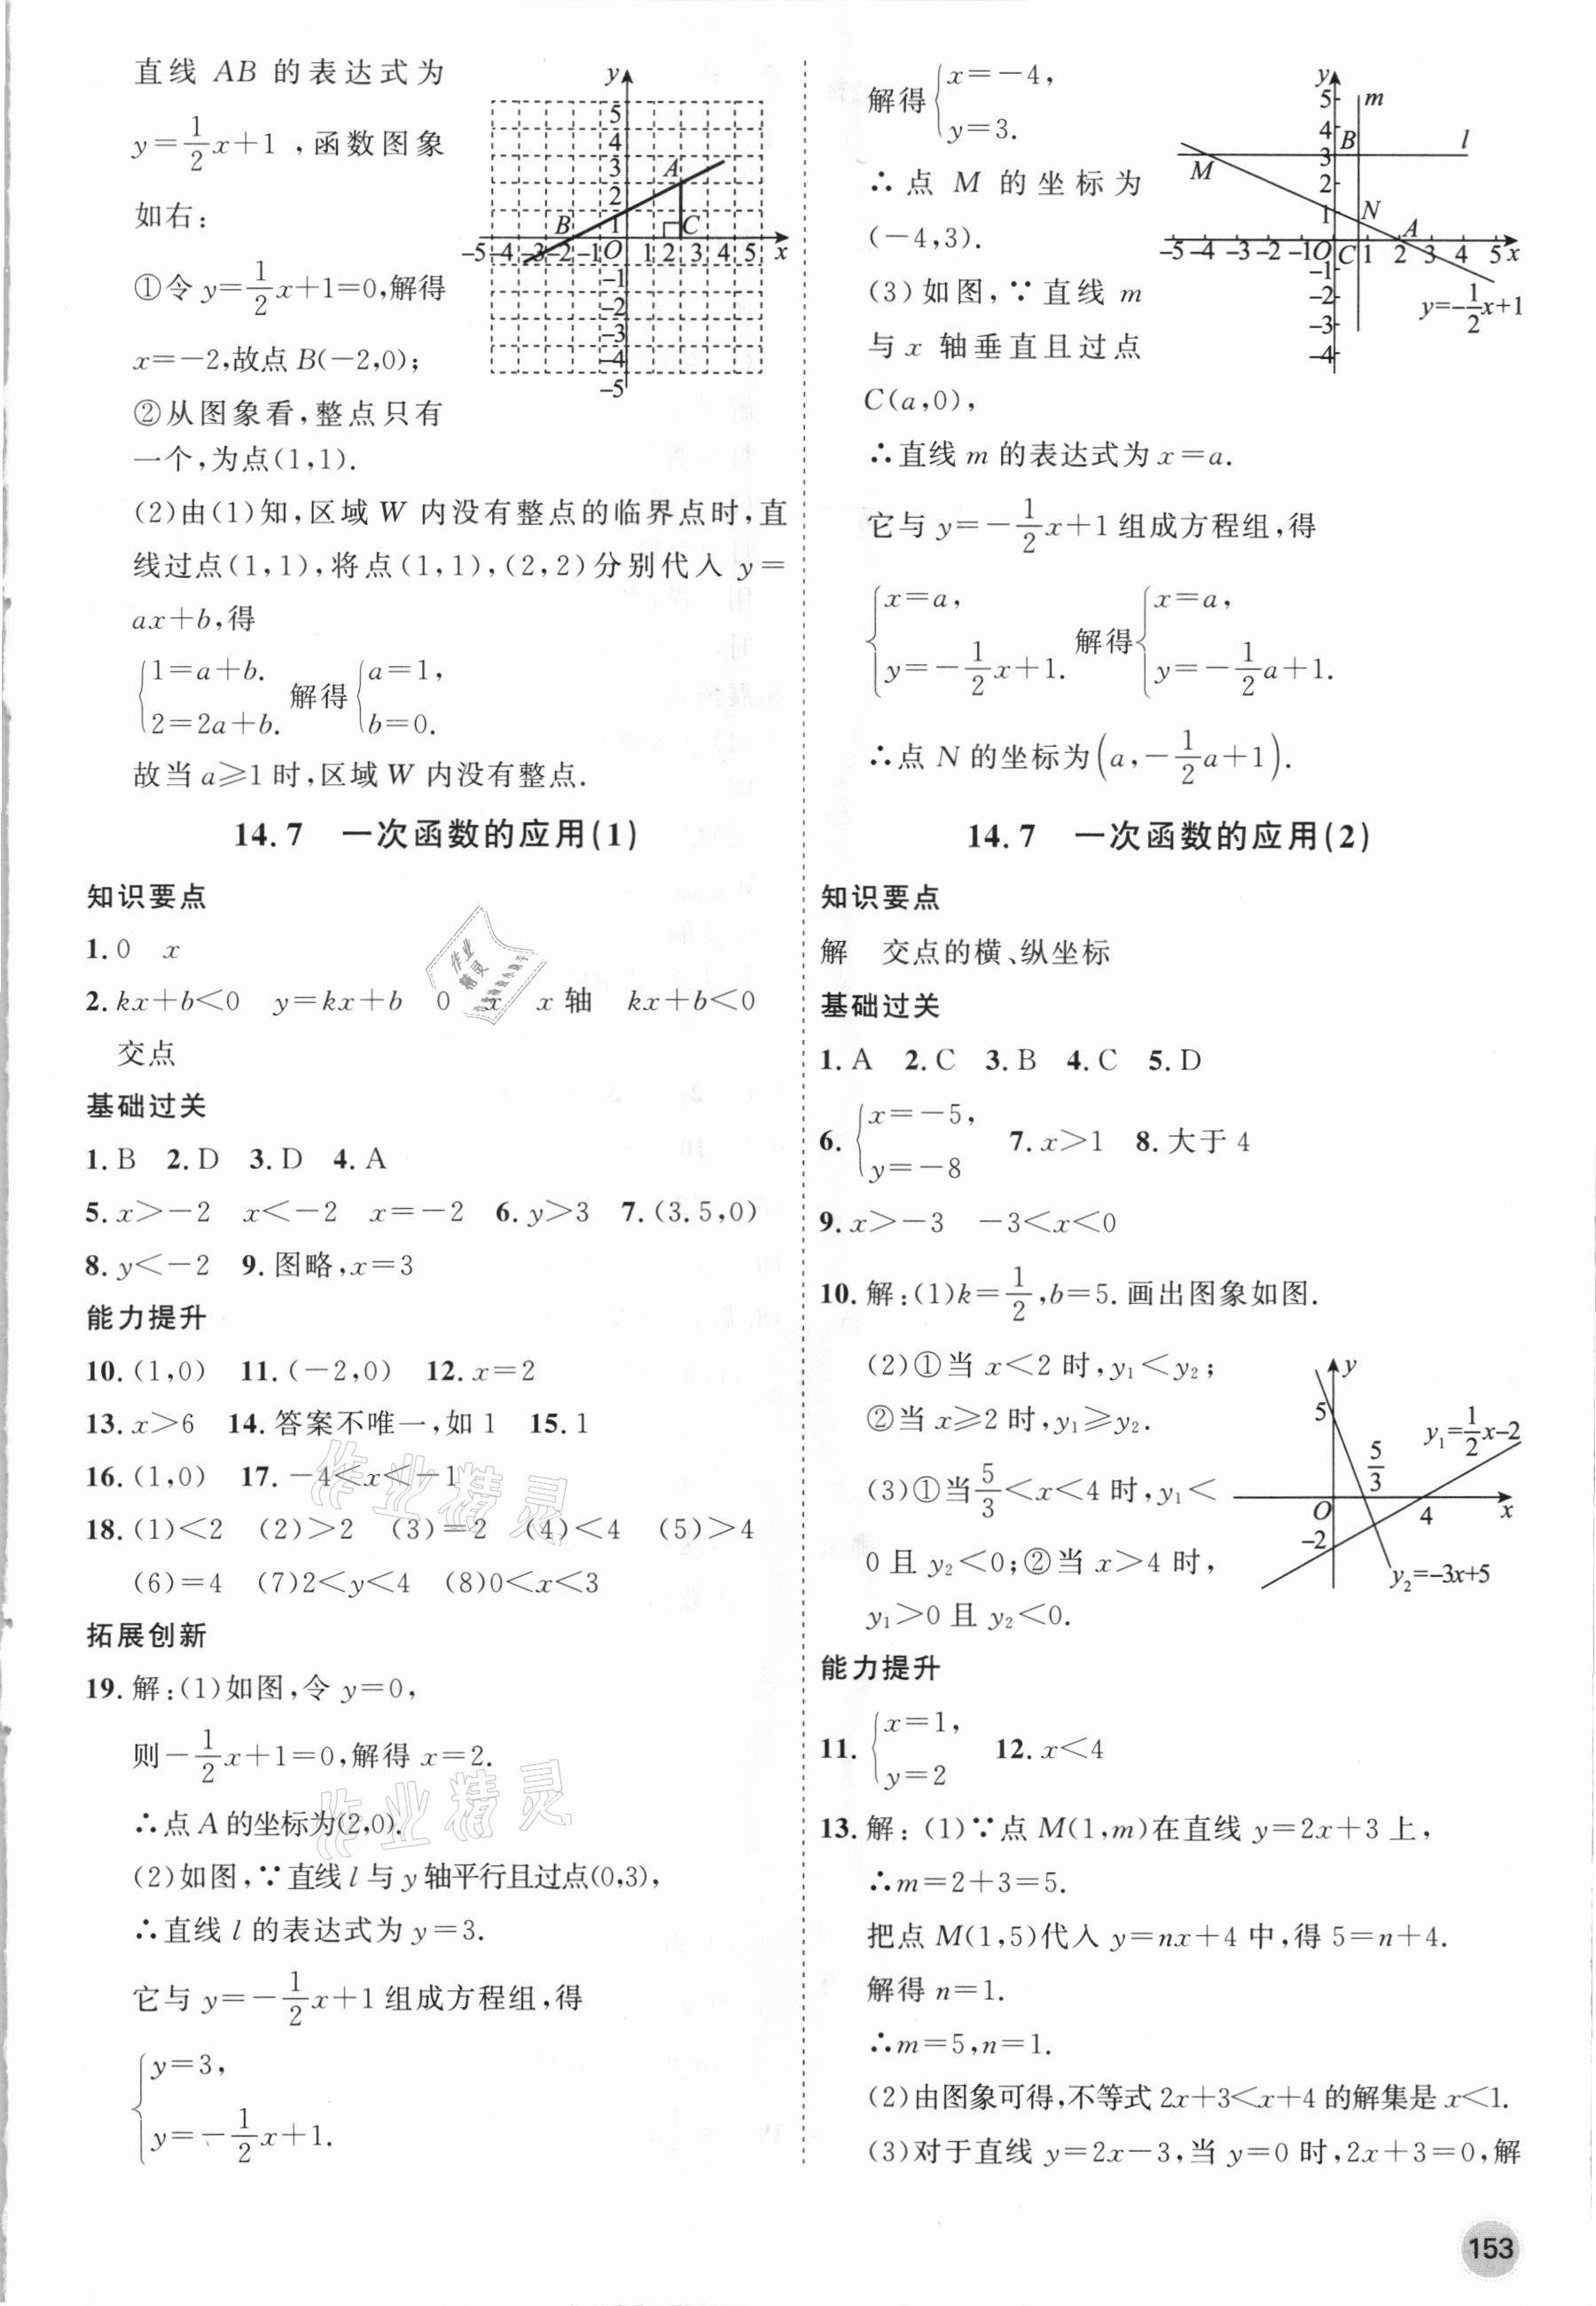 直线 AB 的表达式为
y=1/2x+1 ,函数图象
如右:
①令 y=1/2x+1=0,解得
x=-2,故点 B(-2,0);
②从图象看,整点只有
一个,为点(1,1).
y
5
4
3
2
1
A
B
C
-5 -4 -3 -2 -1 O 1 2 3 4 5 x
-1
-2
-3
-4
-5
(2)由(1)知,区域 W 内没有整点的临界点时,直
线过点(1,1),将点(1,1),(2,2)分别代入 y=
ax+b,得
{1=a+b. 2=2a+b. 解得{a=1, b=0.
故当 a≥1 时,区域 W 内没有整点.
14.7 一次函数的应用(1)
知识要点
1.0 x
2.kx+b<0 y=kx+b 0 x x 轴 kx+b<0
交点
基础过关
1.B 2.D 3.D 4.A
5.x>-2 x<-2 x=-2 6.y>3 7.(3.5,0)
8.y<-2 9.图略,x=3
能力提升
10.(1,0) 11.(-2,0) 12.x=2
13.x>6 14.答案不唯一,如 1 15.1
16.(1,0) 17.-4<x<-1
18.(1)<2 (2)>2 (3)=2 (4)<4 (5)>4
(6)=4 (7)2<y<4 (8)0<x<3
拓展创新
19.解:(1)如图,令 y=0,
则-1/2x+1=0,解得 x=2.
∴点 A 的坐标为(2,0).
(2)如图,∵直线 l 与 y 轴平行且过点(0,3),
∴直线 l 的表达式为 y=3.
它与 y=-1/2x+1 组成方程组,得
{y=3, y=-1/2x+1.
作业精灵
作业精灵
作业精灵
解得{x=-4, y=3.
∴点 M 的坐标为
(-4,3).
(3)如图,∵直线 m
与 x 轴垂直且过点
C(a,0),
y
5
4
3
2
1
m
B
l
M
N
A
-5 -4 -3 -2 -1 O C 1 2 3 4 5 x
-1
-2
-3
-4
y=-1/2x+1
∴直线 m 的表达式为 x=a.
它与 y=-1/2x+1 组成方程组,得
{x=a, y=-1/2x+1. 解得{x=a, y=-1/2a+1.
∴点 N 的坐标为(a,-1/2a+1).
14.7 一次函数的应用(2)
知识要点
解 交点的横、纵坐标
基础过关
1.A 2.C 3.B 4.C 5.D
6.{x=-5, y=-8 7.x>1 8.大于 4
9.x>-3 -3<x<0
10.解:(1)k=1/2,b=5.画出图象如图.
(2)①当 x<2 时,y₁<y₂;
②当 x≥2 时,y₁≥y₂.
(3)①当5/3<x<4 时,y₁<
0 且 y₂<0;②当 x>4 时,
y₁>0 且 y₂<0.
y
5
y₁=1/2x-2
5/3
O
4
x
-2
y₂=-3x+5
能力提升
11.{x=1, y=2 12.x<4
13.解:(1)∵点 M(1,m)在直线 y=2x+3 上,
∴m=2+3=5.
把点 M(1,5)代入 y=nx+4 中,得 5=n+4.
解得 n=1.
∴m=5,n=1.
(2)由图象可得,不等式 2x+3<x+4 的解集是 x<1.
(3)对于直线 y=2x-3,当 y=0 时,2x+3=0,解
153